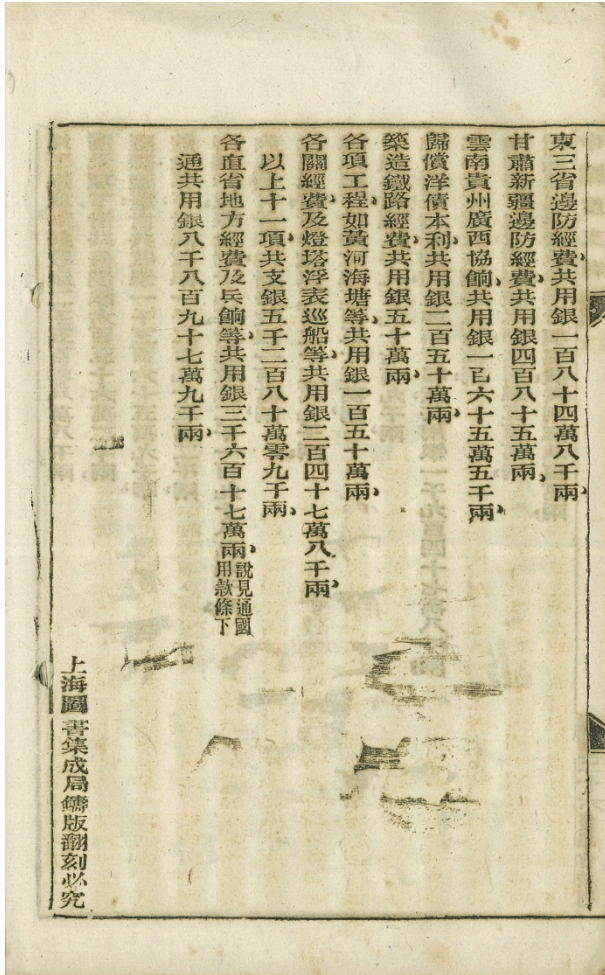 東三省邊防經費共用銀一百八十四萬八千兩、
甘肅新疆邊防經費共用銀四百八十五萬兩、
雲南貴州廣西協餉、共用銀一百六十五萬五千兩、
歸償洋債本利、共用銀二百五十萬兩、
築造鐵路經費、共用銀五十萬兩、
各項工程、如黃河海塘等、共用銀一百五十萬兩、
各關經費、及燈塔浮表巡船等、共用銀二百四十七萬八千兩、
以上十一項、共支銀五千二百八十萬零九千兩、
各直省地方經費及兵餉等、共用銀三千六百十七萬兩、說見通國用款條下
通共用銀八千八百九十七萬九千兩、
上海圖書集成局鑄版翻刻必究